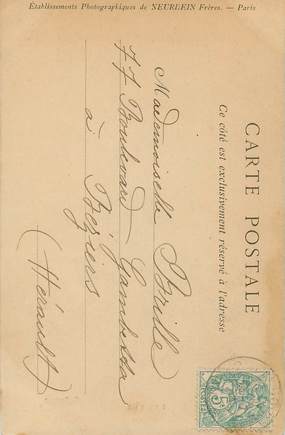 Établissements Photographiques de NEURDEIN Frères. — Paris
CARTE POSTALE
Ce côté est exclusivement réservé à l'adresse
Mademoiselle Brille
77 Boulevard Gambetta
à Béziers
(Hérault)
5